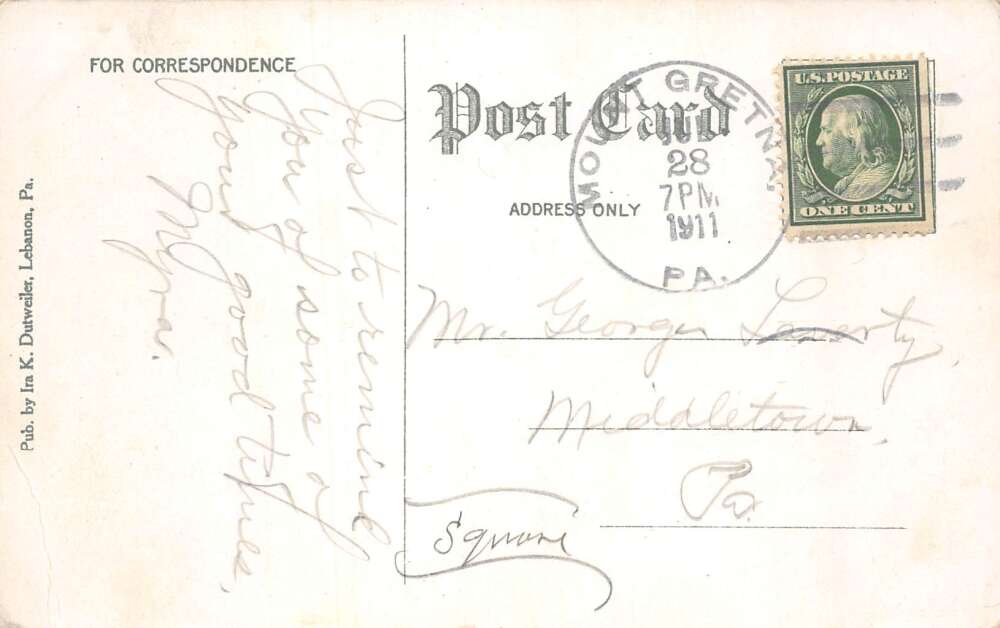 FOR CORRESPONDENCE
Just to remind
you of some of
your good times,
Myra.
Pub. by Ira K. Dutweiler, Lebanon, Pa.
Post Card
ADDRESS ONLY
MOUNT GRETNA,
28
7PM.
1911
PA.
U.S. POSTAGE
ONE CENT
Mr. George Laverty,
Middletown,
Pa.
Square